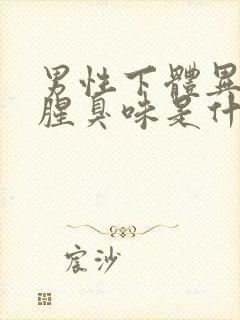 男性下體異
腥臭味是什
宸沙